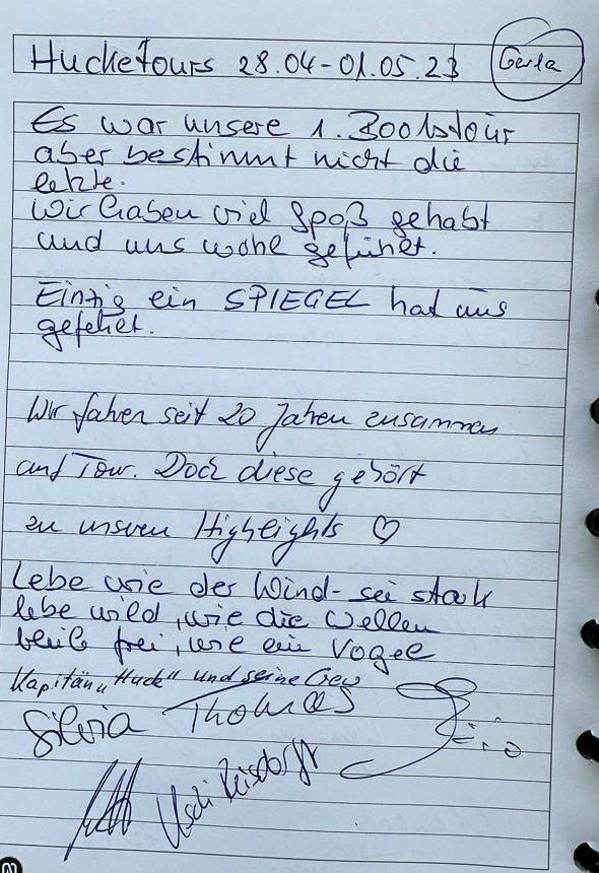 Hucketours 28.04-01.05.23 Gerda
Es war unsere 1. Bootstour
aber bestimmt nicht die
letzte.
Wir haben viel Spaß gehabt
und uns wohl gefühlt.
Einzig ein SPIEGEL hat uns
gefehlt.
Wir fahren seit 20 Jahren zusammen
auf Tour. Doch diese gehört
zu unseren Highlights ♡
Lebe wie der Wind - sei stark
lebe wild, wie die Wellen
bleib frei, wie ein Vogel
Kapitän "Huck" und seine Crew
Silvia Thomas
Uschi Reisdorff